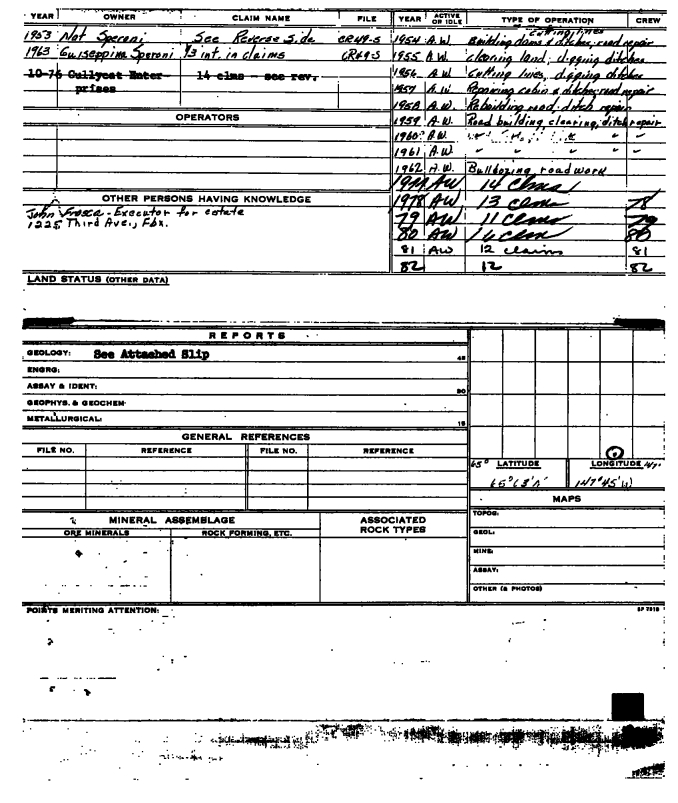 YEAR OWNER CLAIM NAME FILE
1953 Nat Speroni See Reverse Side CR49-S
1963 Guiseppina Speroni ⅓ int. in claims CR49-S
10-76 Gullycat Enter-
prises
14 clms - see rev.
OPERATORS
OTHER PERSONS HAVING KNOWLEDGE
John Frosca - Executor for estate
1225 Third Ave., Fbx.
YEAR ACTIVE OR IDLE TYPE OF OPERATION CREW
cutting lines
1954 A.W. Building dams & ditches, road repair
1955 A.W. clearing land, digging ditches
1956 A.W. Cutting lines, digging ditches
1957 A.W. Repairing cabin & ditches, road repair
1958 A.W. Rebuilding road, ditch repair
1959 A.W. Road building clearing, ditch repair
1960 A.W. " "
1961 A.W. " " " " "
1962 A.W. Bulldozing, road work
AW 14 clms
1978 AW 13 clms 78
79 AW 11 clms 79
80 AW clms 80
81 AW 12 claims 81
82 12 82
LAND STATUS (OTHER DATA)
REPORTS
GEOLOGY: See Attached Slip
ENGRG:
ASSAY & IDENT:
GEOPHYS. & GEOCHEM:
METALLURGICAL:
GENERAL REFERENCES
FILE NO. REFERENCE FILE NO. REFERENCE
MINERAL ASSEMBLAGE
ORE MINERALS ROCK FORMING, ETC.
ASSOCIATED
ROCK TYPES
65° LATITUDE LONGITUDE 147°
65°03'N 147°45'W
MAPS
TOPOG:
GEOL:
MINE:
ASSAY:
OTHER (& PHOTOS)
POINTS MERITING ATTENTION: